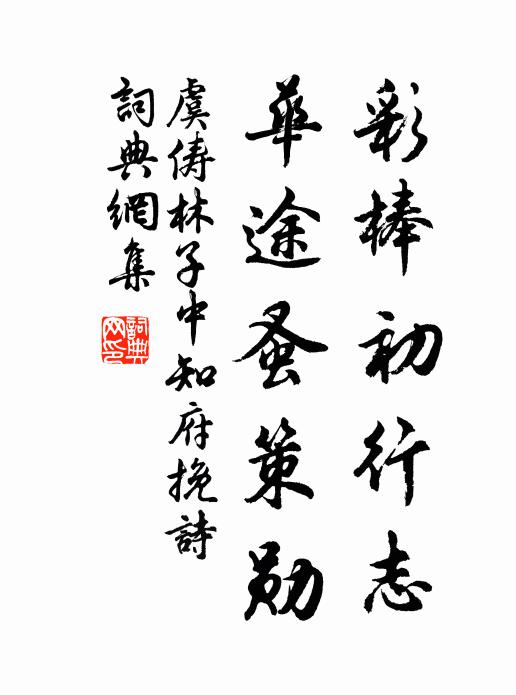 彩棒初行志
華途蚤策勛
虞俦林子中知府挽詩
詞典網集
詞典网印